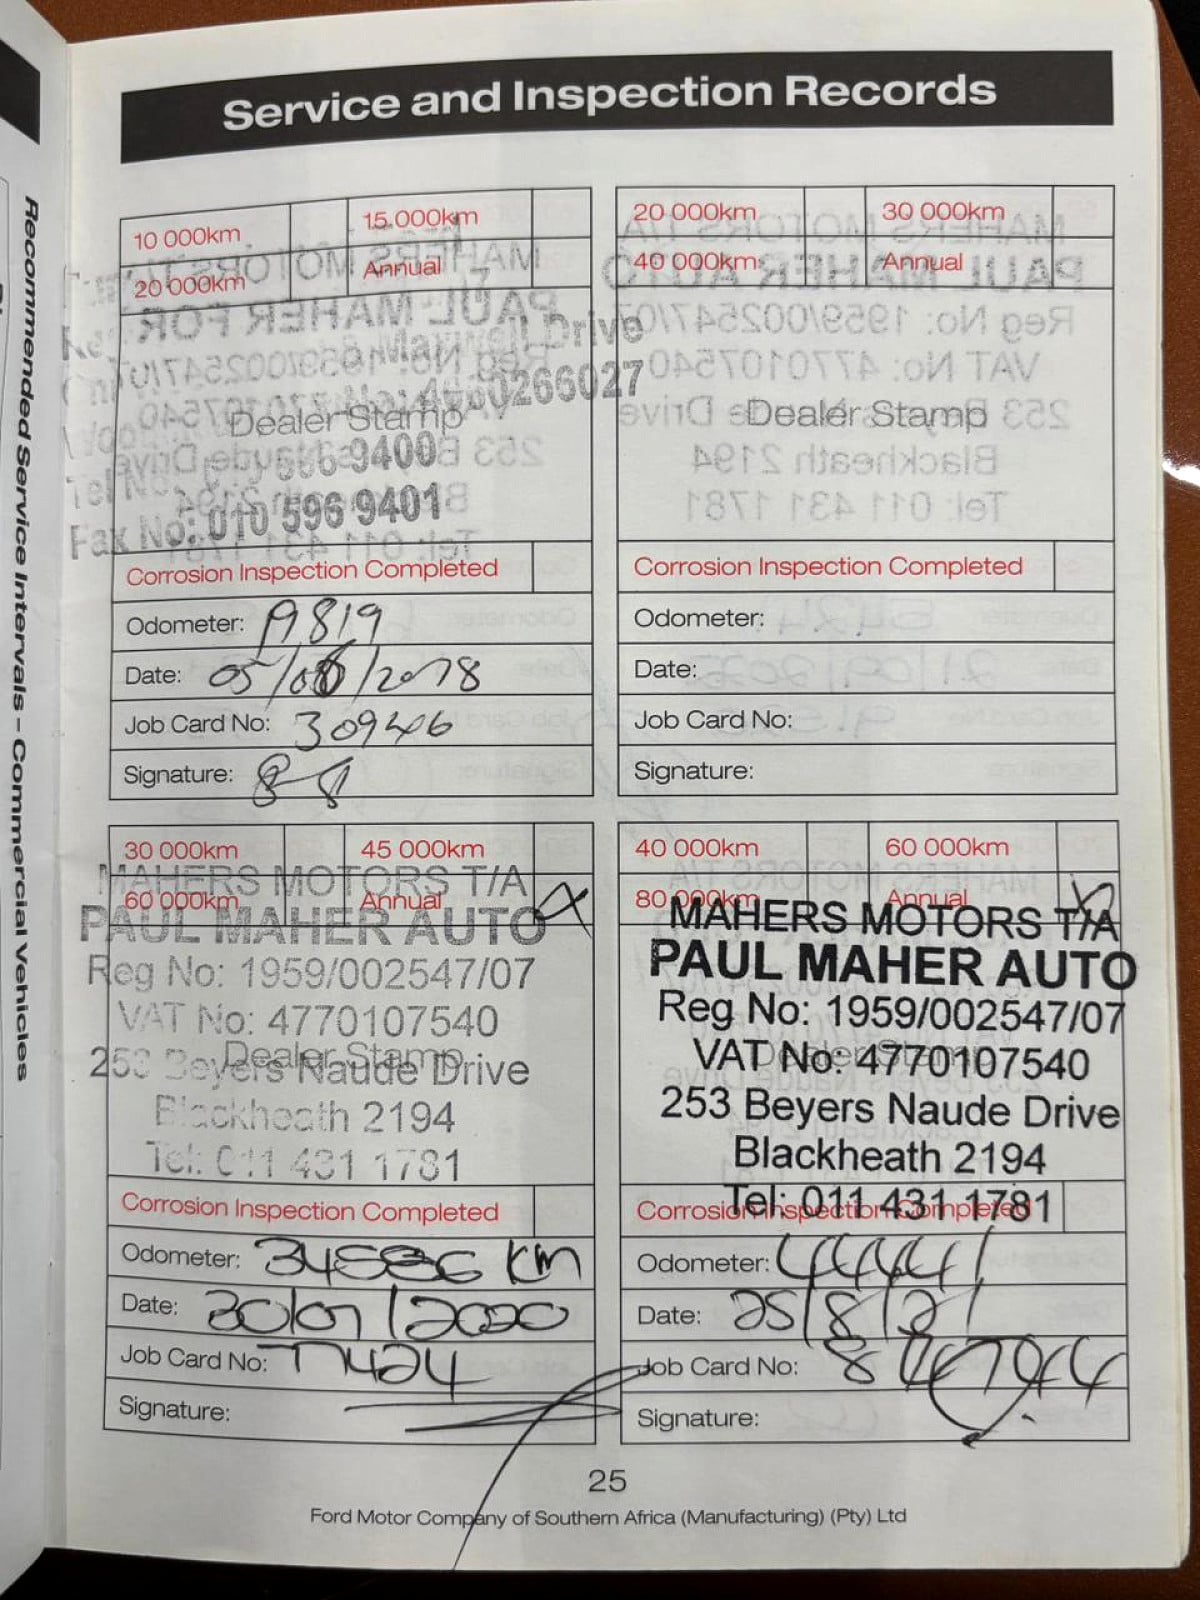 Service and Inspection Records
Recommended Service Intervals – Commercial Vehicles
10 000km
15 000km
20 000km
Annual
Maxwell Drive
4680266027
Dealer Stamp
9400
Fax No: 010 596 9401
Corrosion Inspection Completed
Odometer: 19819
Date: 05/06/2018
Job Card No: 30946
Signature:
20 000km
30 000km
40 000km
Annual
Dealer Stamp
Corrosion Inspection Completed
Odometer:
Date:
Job Card No:
Signature:
30 000km
45 000km
60 000km
Annual
MAHERS MOTORS T/A
PAUL MAHER AUTO
Reg No: 1959/002547/07
VAT No: 4770107540
Dealer Stamp
253 Beyers Naude Drive
Blackheath 2194
Tel: 011 431 1781
Corrosion Inspection Completed
Odometer: 34586 km
Date: 30/07/2020
Job Card No: 77424
Signature:
40 000km
60 000km
80 000km
Annual
MAHERS MOTORS T/A
PAUL MAHER AUTO
Reg No: 1959/002547/07
VAT No: 4770107540
Dealer Stamp
253 Beyers Naude Drive
Blackheath 2194
Tel: 011 431 1781
Corrosion Inspection Completed
Odometer: 44441
Date: 25/8/21
Job Card No: 84794
Signature:
25
Ford Motor Company of Southern Africa (Manufacturing) (Pty) Ltd